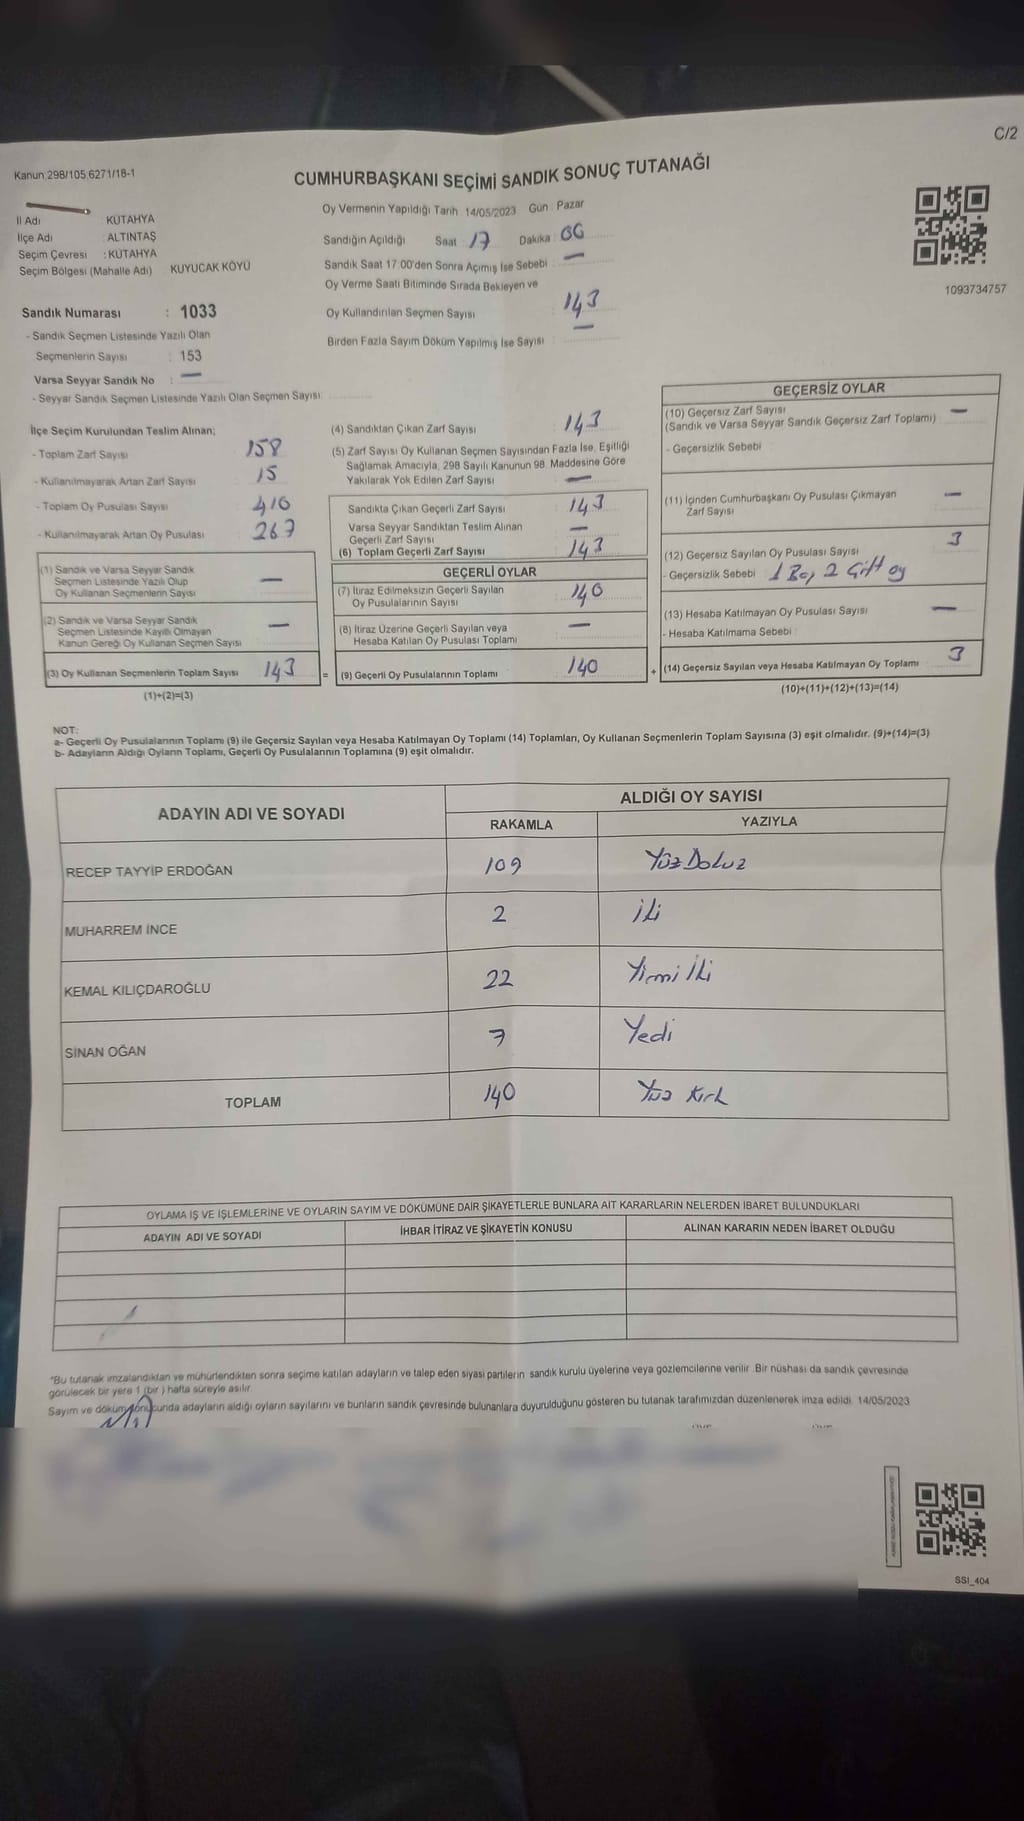 C/2
Kanun 298/105 6271/18-1
CUMHURBAŞKANI SEÇİMİ SANDIK SONUÇ TUTANAĞI
İl Adı : KÜTAHYA
İlçe Adı : ALTINTAŞ
Seçim Çevresi : KÜTAHYA
Seçim Bölgesi (Mahalle Adı) KUYUCAK KÖYÜ
Oy Vermenin Yapıldığı Tarih 14/05/2023 Gün Pazar
Sandığın Açıldığı Saat 17 Dakika : 00
Sandık Saat 17:00'den Sonra Açımış İse Sebebi : —
Oy Verme Saati Bitiminde Sırada Bekleyen ve
Oy Kullandırılan Seçmen Sayısı : 143
Birden Fazla Sayım Döküm Yapılmış İse Sayısı : —
1093734757
Sandık Numarası : 1033
- Sandık Seçmen Listesinde Yazılı Olan
Seçmenlerin Sayısı : 153
Varsa Seyyar Sandık No : —
- Seyyar Sandık Seçmen Listesinde Yazılı Olan Seçmen Sayısı:
İlçe Seçim Kurulundan Teslim Alınan;
- Toplam Zarf Sayısı 158
- Kullanılmayarak Artan Zarf Sayısı 15
- Toplam Oy Pusulası Sayısı 410
- Kullanılmayarak Artan Oy Pusulası 267
(1) Sandık ve Varsa Seyyar Sandık
Seçmen Listesinde Yazılı Olup
Oy Kullanan Seçmenlerin Sayısı —
(2) Sandık ve Varsa Seyyar Sandık
Seçmen Listesinde Kayıtlı Olmayan
Kanun Gereği Oy Kullanan Seçmen Sayısı —
(3) Oy Kullanan Seçmenlerin Toplam Sayısı 143 =
(1)+(2)=(3)
(4) Sandıktan Çıkan Zarf Sayısı 143
(5) Zarf Sayısı Oy Kullanan Seçmen Sayısından Fazla İse, Eşitliği
Sağlamak Amacıyla, 298 Sayılı Kanunun 98. Maddesine Göre
Yakılarak Yok Edilen Zarf Sayısı —
Sandıkta Çıkan Geçerli Zarf Sayısı 143
Varsa Seyyar Sandıktan Teslim Alınan
Geçerli Zarf Sayısı —
(6) Toplam Geçerli Zarf Sayısı 143
GEÇERLİ OYLAR
(7) İtiraz Edilmeksizin Geçerli Sayılan
Oy Pusulalarının Sayısı 140
(8) İtiraz Üzerine Geçerli Sayılan veya
Hesaba Katılan Oy Pusulası Toplamı —
(9) Geçerli Oy Pusulalarının Toplamı 140 +
GEÇERSİZ OYLAR
(10) Geçersiz Zarf Sayısı —
(Sandık ve Varsa Seyyar Sandık Geçersiz Zarf Toplamı)
- Geçersizlik Sebebi
(11) İçinden Cumhurbaşkanı Oy Pusulası Çıkmayan
Zarf Sayısı —
(12) Geçersiz Sayılan Oy Pusulası Sayısı 3
- Geçersizlik Sebebi 1 Boş 2 Çift oy
(13) Hesaba Katılmayan Oy Pusulası Sayısı —
- Hesaba Katılmama Sebebi :
(14) Geçersiz Sayılan veya Hesaba Katılmayan Oy Toplamı 3
(10)+(11)+(12)+(13)=(14)
NOT:
a- Geçerli Oy Pusulalarının Toplamı (9) ile Geçersiz Sayılan veya Hesaba Katılmayan Oy Toplamı (14) Toplamları, Oy Kullanan Seçmenlerin Toplam Sayısına (3) eşit olmalıdır. (9)+(14)=(3)
b- Adayların Aldığı Oyların Toplamı, Geçerli Oy Pusulalarının Toplamına (9) eşit olmalıdır.
ADAYIN ADI VE SOYADI ALDIĞI OY SAYISI
RAKAMLA YAZIYLA
RECEP TAYYİP ERDOĞAN 109 Yüz Dokuz
MUHARREM İNCE 2 iki
KEMAL KILIÇDAROĞLU 22 Yirmi İki
SİNAN OĞAN 7 Yedi
TOPLAM 140 Yüz Kırk
OYLAMA İŞ VE İŞLEMLERİNE VE OYLARIN SAYIM VE DÖKÜMÜNE DAİR ŞİKAYETLERLE BUNLARA AİT KARARLARIN NELERDEN İBARET BULUNDUKLARI
ADAYIN ADI VE SOYADI İHBAR İTİRAZ VE ŞİKAYETİN KONUSU ALINAN KARARIN NEDEN İBARET OLDUĞU
"Bu tutanak imzalandıktan ve mühürlendikten sonra seçime katılan adayların ve talep eden siyasi partilerin sandık kurulu üyelerine veya gözlemcilerine verilir. Bir nüshası da sandık çevresinde
görülecek bir yere 1 (bir ) hafta süreyle asılır.
Sayım ve döküm sonucunda adayların aldığı oyların sayılarını ve bunların sandık çevresinde bulunanlara duyurulduğunu gösteren bu tutanak tarafımızdan düzenlenerek imza edildi. 14/05/2023
SSI_404